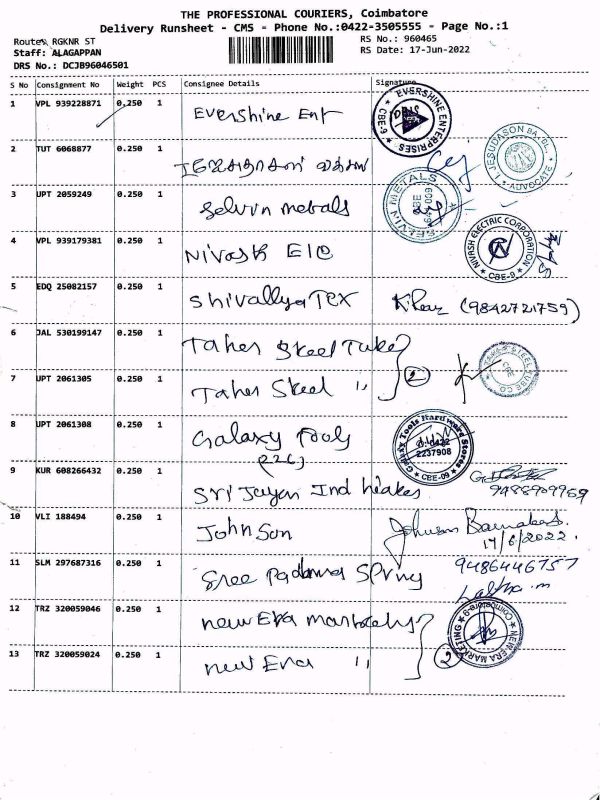 THE PROFESSIONAL COURIERS, Coimbatore
Delivery Runsheet - CMS - Phone No.:0422-3505555 - Page No.:1
Route: RGKNR ST
RS No.: 960465
Staff: ALAGAPPAN
RS Date: 17-Jun-2022
DRS No.: DCJB96046501
S No Consignment No Weight PCS Consignee Details Signature
1 VPL 939228871 0.250 1 Evershine Ent
EVERSHINE ENTERPRISES CBE-6
2 TUT 6068877 0.250 1
JESUDASON BA.BL. ADVOCATE
3 UPT 2059249 0.250 1 Selvin metals
SELVIN METALS CBE 641 009
4 VPL 939179381 0.250 1 Nivash Ele
NIVASH ELECTRIC CORPORATION CBE-9
5 EDQ 25082157 0.250 1 Shivallya Tex (9842721759)
6 JAL 530199147 0.250 1 Taher Steel Tube
7 UPT 2061305 0.250 1 Taher Steel " 2
TAHER STEEL TUBE CO CBE
8 UPT 2061308 0.250 1 Galaxy Tools
(226)
Galaxy Tools Hardware Stores 0422 2237908 CBE-09
9 KUR 608266432 0.250 1 Sri Jayan Ind
9488909969
10 VLI 188494 0.250 1 Johnson
17/6/2022.
11 SLM 297687316 0.250 1 Sree Padma Spring 9486446757
Lalitha.m
12 TRZ 320059046 0.250 1 New Era
13 TRZ 320059024 0.250 1 New Era " 2
NEW-ERA MARKETING COIMBATORE-9